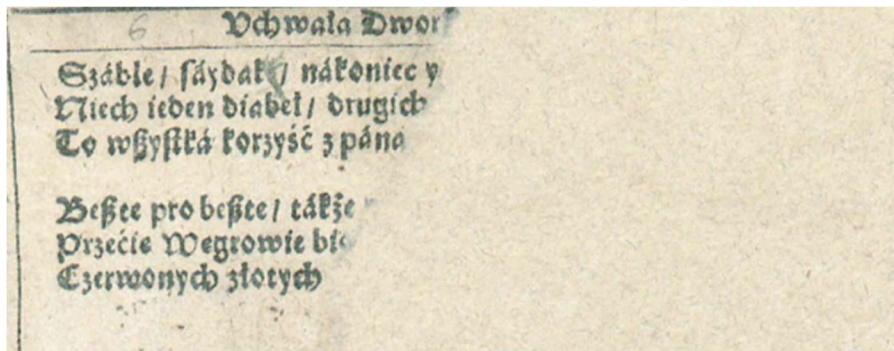 6 Vchwała Dwor
Száble / sáydak / nákoniec y
Niech ieden diabeł / drugich
To wßystká korzyść z pána
Beßtee pro beßtee / tákże
Przećie Wegrowie
Czerwonych złotych